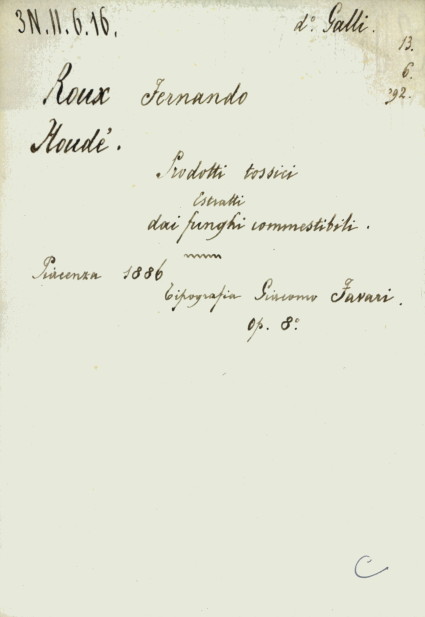 3N.II.6.16.
d.º Galli.
13.
6.
'92.
Roux Fernando
Houdé.
Prodotti tossici
Estratti
dai funghi commestibili.
Piacenza 1886
Tipografia Giacomo Favari.
Op. 8.º
C